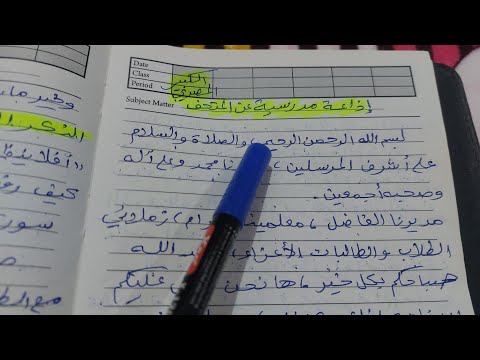 Date
Class الكبير
Period المصري
Subject Matter إذاعة مدرسية عن المتحف
بسم الله الرحمن الرحيم، والصلاة والسلام
على أشرف المرسلين، نا محمد وعلى آله
وصحبه أجمعين.
مديرنا الفاضل، ام، زملائي
الطلاب والطالبات الأعزاء، د الله
صباحكم بكل خير، ها نحن عليكم
وخير ما
الذكر ال
((أفلا ينظ
كيف رف
سور
مع الط